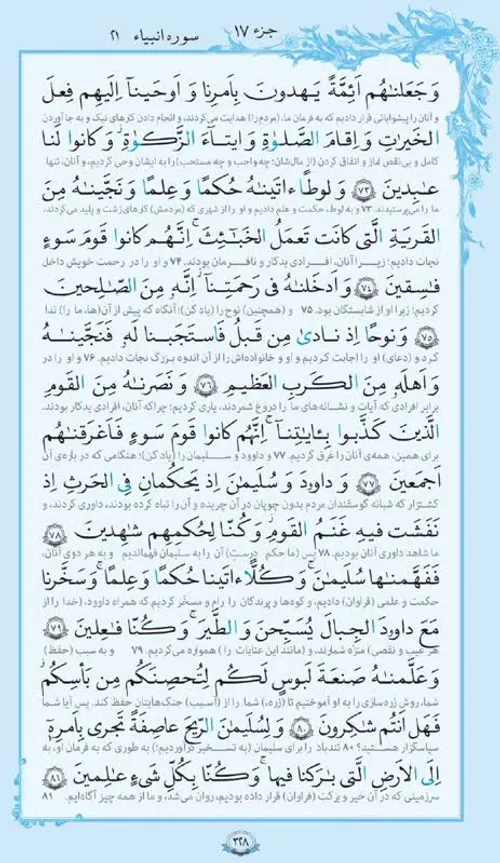 جزء ۱۷
سوره انبیاء ۲۱
وَ جَعَلنٰهُم اَئِمَّةً یَهدونَ بِاَمرِنا وَ اَوحَینآ اِلَیهِم فِعلَ
و آنان را پیشوایانی قرار دادیم که به فرمان ما، (مردم را) هدایت می‌کردند، و انجام دادن کارهای نیک و به جا آوردن
الخَیرٰتِ وَ اِقامَ الصَّلوٰةِ وَ ایتآءَ الزَّکوٰةِ ۖ وَ کانوا لَنا
کامل و بی‌نقص نماز و انفاق کردن (از مال‌شان؛ چه واجب و چه مستحب) را به ایشان وحی کردیم، و آنان، تنها
عٰبِدینَ ﴿۷۳﴾ وَ لوطًا ءاتَینٰهُ حُکمًا وَ عِلمًا وَ نَجَّینٰهُ مِنَ
ما را می‌پرستیدند. ۷۳ و به لوط، حکمت و علم دادیم و او را از شهری که (مردمش) کارهای زشت و پلید می‌کردند،
القَریَةِ الَّتی کانَت تَعمَلُ الخَبٰٓئِثَ ۚ اِنَّهُم کانوا قَومَ سَوءٍ
نجات دادیم؛ زیرا آنان، افرادی بدکار و نافرمان بودند. ۷۴ و او را در رحمت خویش داخل
فٰسِقینَ ﴿۷۴﴾ وَ اَدخَلنٰهُ فی رَحمَتِنآ ۖ اِنَّهُ مِنَ الصّٰلِحینَ
کردیم؛ زیرا او از شایستگان بود. ۷۵ و (همچنین) نوح را (یاد کن)؛ آنگاه که پیش از آن(ها، ما را) ندا
﴿۷۵﴾ وَ نوحًا اِذ نادیٰ مِن قَبلُ فَاستَجَبنا لَهُ فَنَجَّینٰهُ
کرد و (دعای) او را اجابت کردیم و او و خانواده‌اش را از آن اندوه بزرگ نجات دادیم. ۷۶ و او را در
وَ اَهلَهُ مِنَ الکَربِ العَظیمِ ﴿۷۶﴾ وَ نَصَرنٰهُ مِنَ القَومِ
برابر افرادی که آیات و نشانه‌های ما را دروغ شمردند، یاری کردیم؛ چراکه آنان، افرادی بدکار بودند.
الَّذینَ کَذَّبوا بِئایٰتِنآ ۚ اِنَّهُم کانوا قَومَ سَوءٍ فَاَغرَقنٰهُم
برای همین، همه‌ی آنان را غرق کردیم. ۷۷ و داوود و سلیمان را (یاد کن)؛ هنگامی که در باره‌ی آن
اَجمَعینَ ﴿۷۷﴾ وَ داوودَ وَ سُلَیمٰنَ اِذ یَحکُمانِ فِی الحَرثِ اِذ
کشتزار که شبانه گوسفندان مردم بدون چوپان در آن چریده و آن را تباه کرده بودند، داوری کردند، و
نَفَشَت فیهِ غَنَمُ القَومِ وَ کُنّا لِحُکمِهِم شٰهِدینَ ﴿۷۸﴾
ما شاهد داوری آنان بودیم. ۷۸ پس (ما حکم درستِ) آن را به سلیمان فهماندیم و به هر دوی آنان،
فَفَهَّمنٰها سُلَیمٰنَ ۚ وَ کُلًّا ءاتَینا حُکمًا وَ عِلمًا ۚ وَ سَخَّرنا
حکمت و علمی (فراوان) دادیم، و کوه‌ها و پرندگان را رام و مسخّر کردیم که همراه داوود، (خدا را از
مَعَ داودَ الجِبالَ یُسَبِّحنَ وَ الطَّیرَ ۚ وَ کُنّا فٰعِلینَ ﴿۷۹﴾
هر عیب و نقصی) منزّه شمارند، و (مانند این عنایات را) همواره می‌کردیم. ۷۹ و به سبب (حفظ)
وَ عَلَّمنٰهُ صَنعَةَ لَبوسٍ لَکُم لِتُحصِنَکُم مِن بَأسِکُم ۖ
شما، روش زره‌سازی را به او آموختیم تا (زره،) شما را از (آسیب) جنگ‌هایتان حفظ کند. پس آیا شما
فَهَل اَنتُم شٰکِرونَ ﴿۸۰﴾ وَ لِسُلَیمٰنَ الرّیحَ عاصِفَةً تَجری بِاَمرِهِ
سپاسگزار هستید؟ ۸۰ تندباد را برای سلیمان (به تسخیر درآوردیم؛) به طوری که به فرمان او، به
اِلَی الاَرضِ الَّتی بٰرَکنا فیها ۚ وَ کُنّا بِکُلِّ شَیءٍ عٰلِمینَ ﴿۸۱﴾
سرزمینی که در آن خیر و برکت (فراوان) قرار داده بودیم، روان می‌شد، و ما از همه چیز آگاه‌ایم. ۸۱
۳۲۸